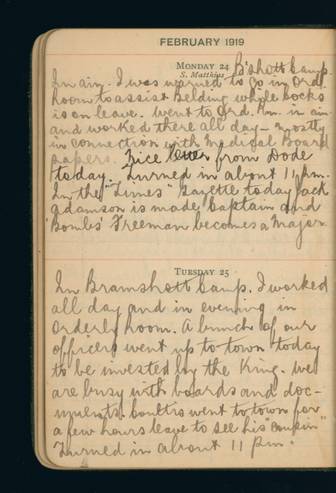 FEBRUARY 1919
MONDAY 24 B'shott Camp
S. Matthias
In ain. I was warned to go in Ord.
Room to assist Belding while Socks
is on leave. Went to Ord. Rm. in ain
and worked there all day – mostly
in connection with Medical Board
papers. Nice letter from Dode
today. Turned in about 11 p.m.
In the "Times" Gazette today Jack
Adamson is made Captain and
'Bombs' Freeman becomes a Major.
TUESDAY 25
In Bramshott Camp. I worked
all day and in evening in
Orderly Room. A bunch of our
officers went up to town today
to be invested by the King. We
are busy with boards and doc-
uments. Coultis went to town for
a few hours leave to see his "cousin"
Turned in about 11 p.m.